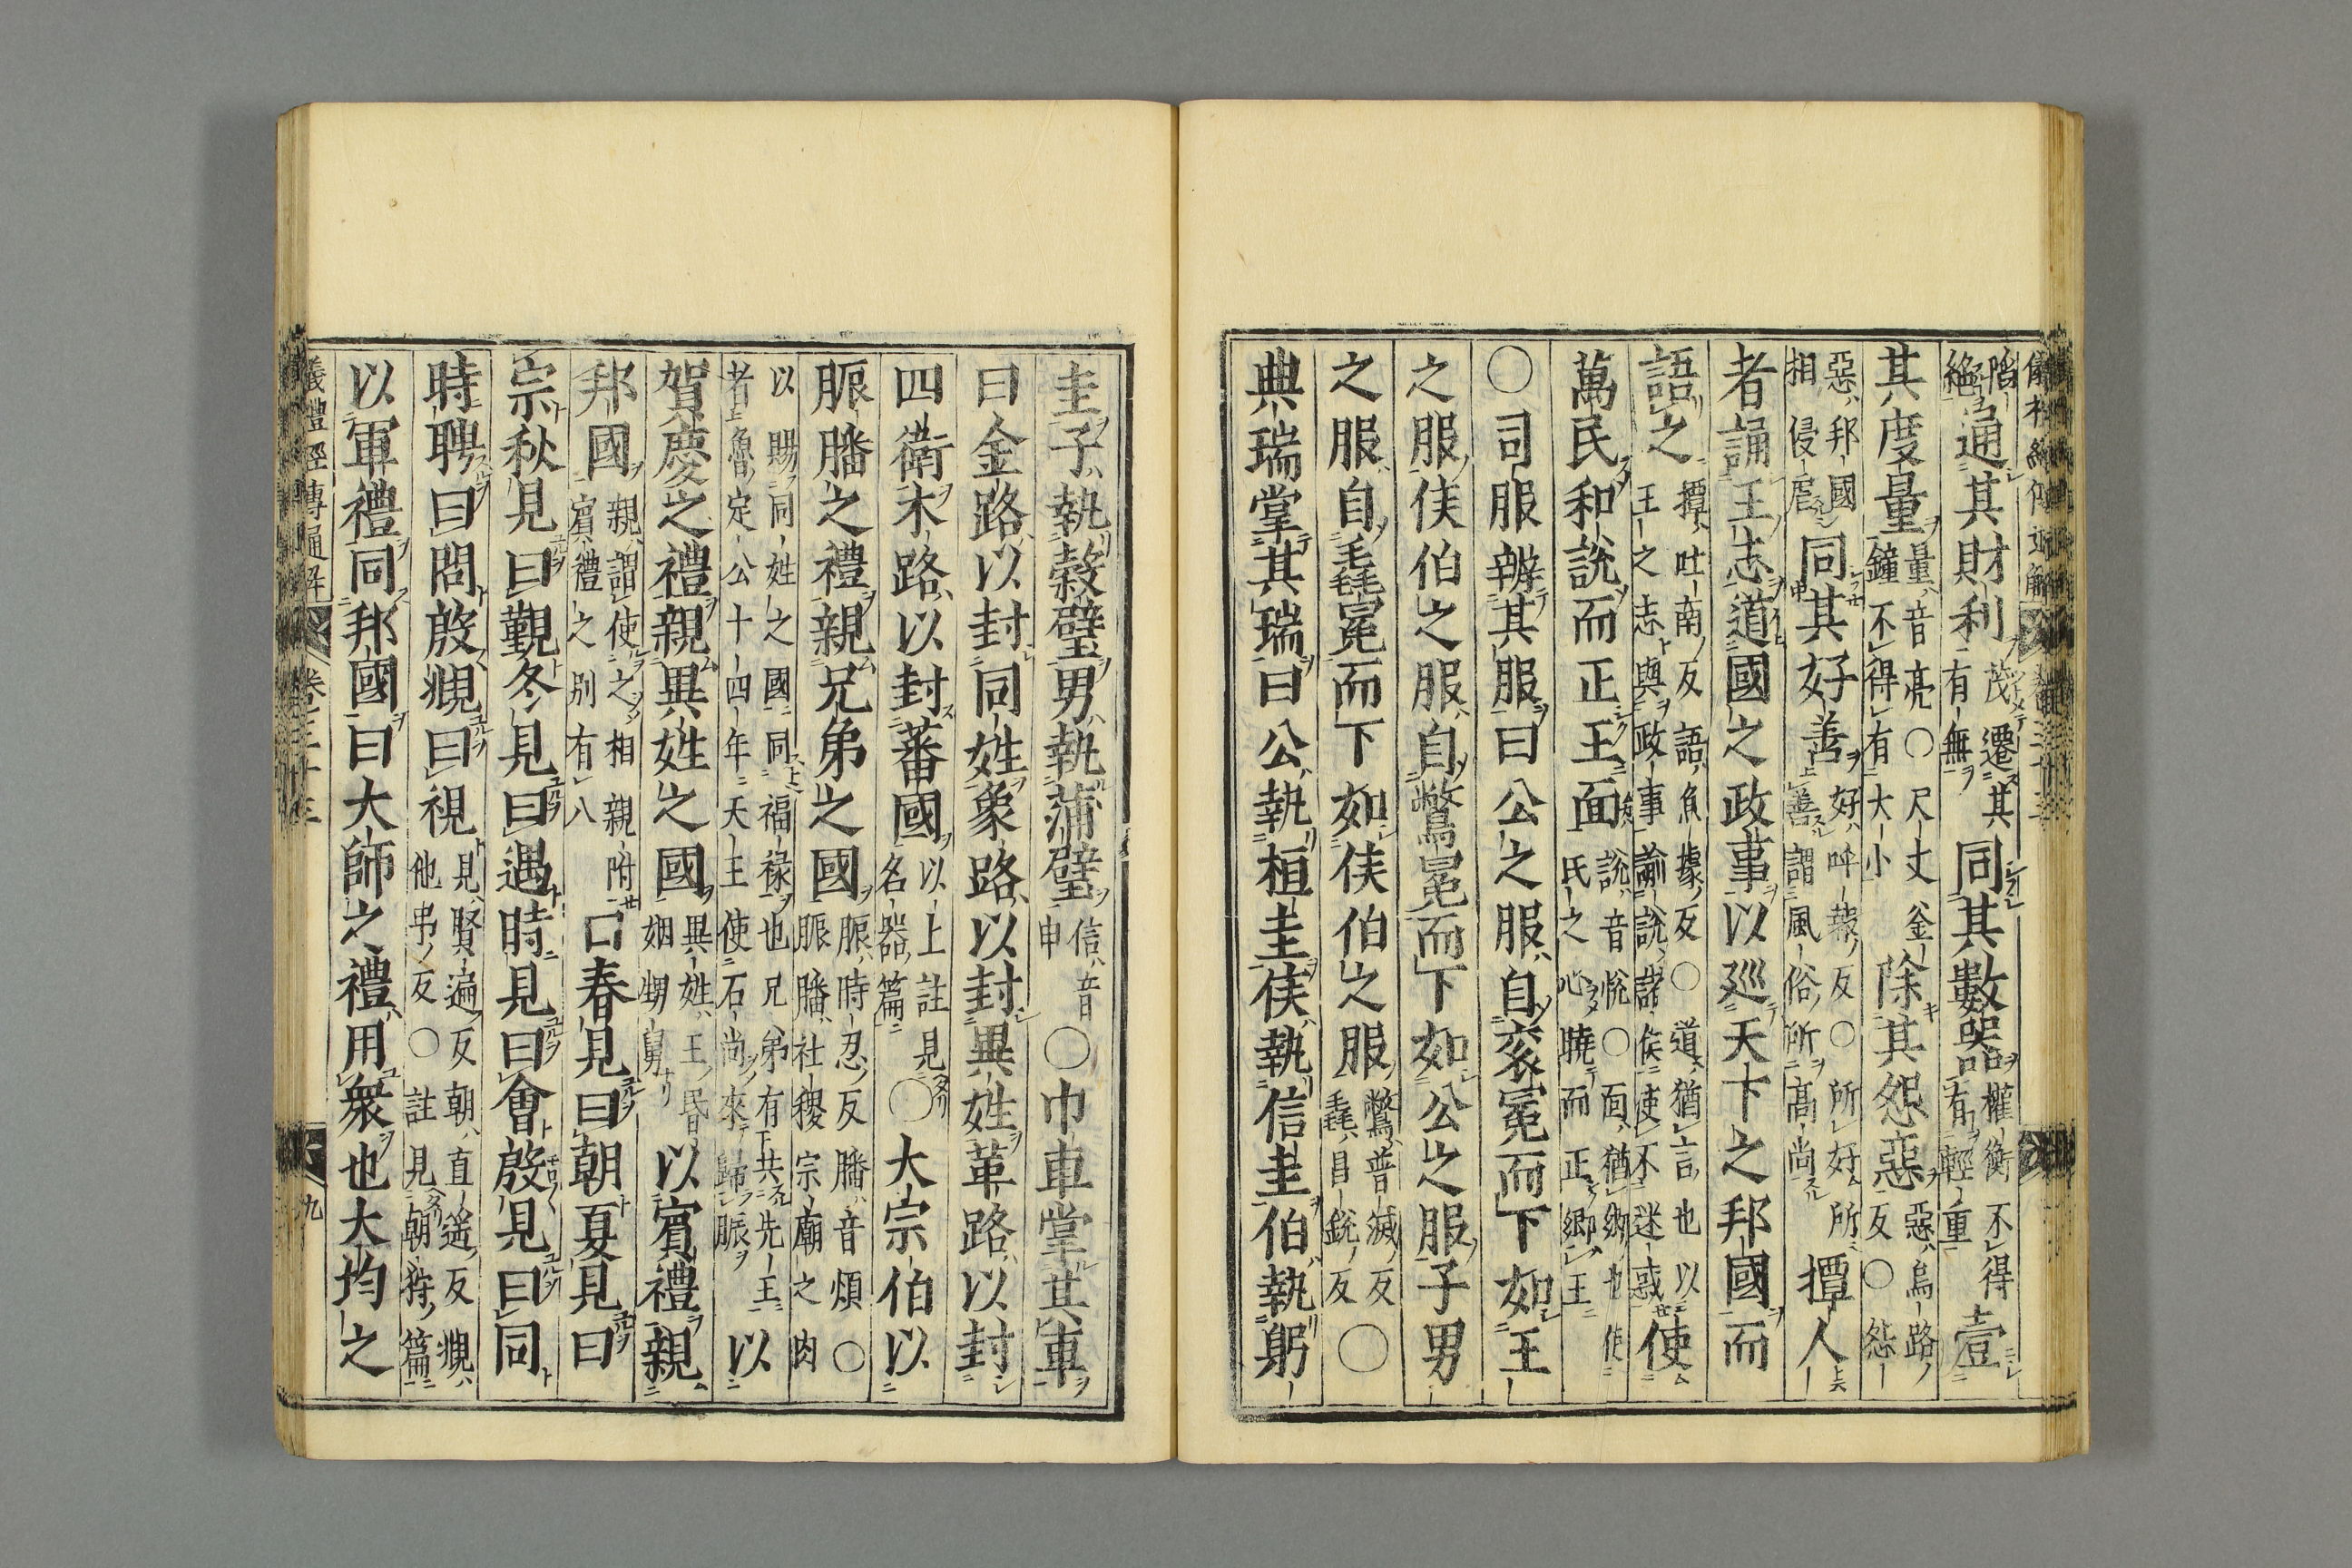 階絕
通其財利
茂遷其有無
同其數器
權衡不得有輕重
壹
其度量
量音亮○尺丈釜鐘不得有大小
除其怨惡
惡烏路反○怨
惡邦國相侵虐
同其好善
好呼報反○所好所善謂風俗所高尚
撢人
者誦王志道國之政事以廵天下之邦國而
語之
撢吐南反語魚據反○道猶言也以王之志與政事諭說諸侯使不迷惑
使
萬民和說而正王面
說音悅○面猶鄉也使民之心曉而正鄉王
○司服辨其服曰公之服自衮冕而下如王
之服侯伯之服自鷩冕而下如公之服子男
之服自毳冕而下如侯伯之服
鷩普滅反毳昌銳反
○
典瑞掌其瑞曰公執桓圭侯執信圭伯執躬
圭子執穀璧男執蒲璧
信音申
○巾車掌其車
曰金路以封同姓象路以封異姓革路以封
四衛木路以封蕃國
以上註見名器篇
○大宗伯以
脤膰之禮親兄弟之國
脤時忍反膰音煩○脤膰社稷宗廟之肉
以賜同姓之國同福祿也兄弟有共先王者魯定公十四年天王使石尚來歸脤
以
賀慶之禮親異姓之國
異姓王昬姻甥舅
以賓禮親
邦國
親謂使之相親附賓禮之別有八
曰春見曰朝夏見曰
宗秋見曰覲冬見曰遇時見曰會殷見曰同
時聘曰問殷覜曰視
見賢遍反朝直遥反覜他弔反○註見朝狩篇
以軍禮同邦國曰大師之禮用衆也大均之
儀禮經傳通解
卷二十三
九